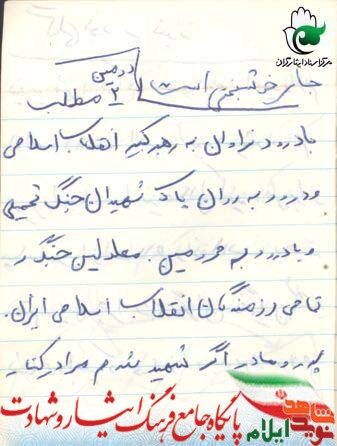 مرکز اسناد ایثارگران
جای خوشبختی است
دومین
۲ مطلب
با درود فراوان به رهبر کبیر انقلاب اسلامی
و درود به روان پاک شهیدان جنگ تحمیلی
و با درود به مجروحین و معلولین جنگ و
تمامی رزمندگان انقلاب اسلامی ایران.
پدر و مادر اگر شهید شدم مرا در کنار
نوید شاهد
ایلام
پایگاه جامع فرهنگ ایثار و شهادت